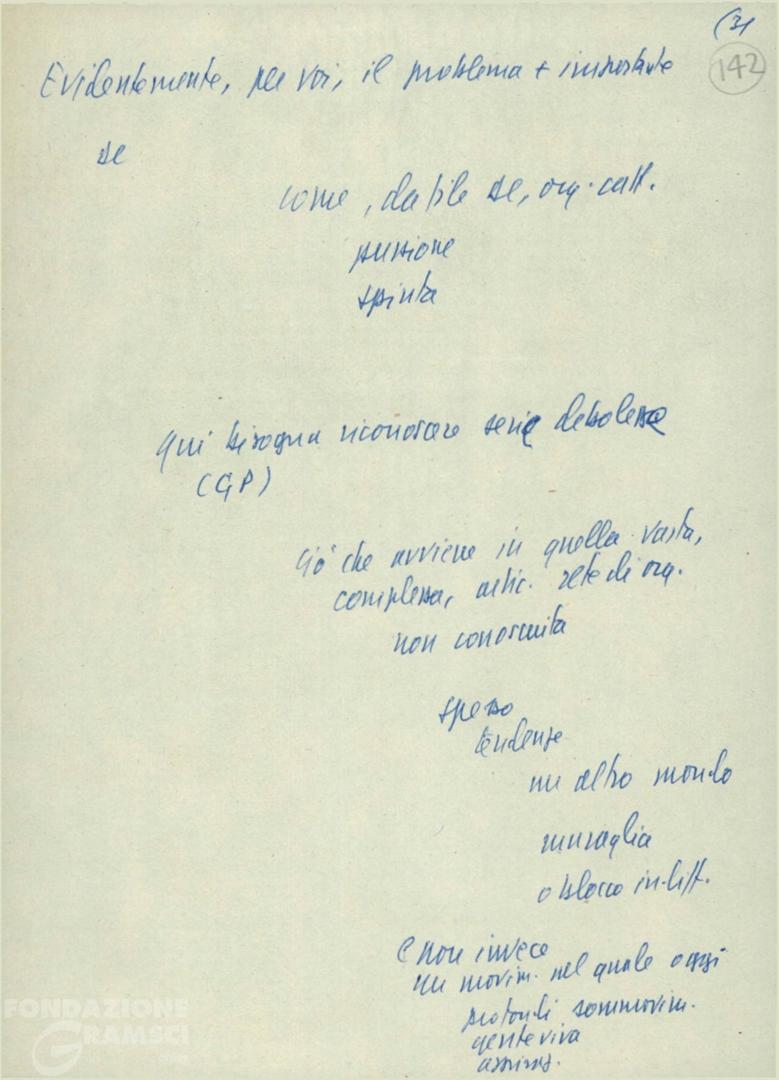 (3)
142
Evidentemente, per voi, il problema + importante
se
come, da file se, org. catt.
pressione
spinta
Qui bisogna riconoscere serie debolezze
(GP)
Ciò che avviene in quella vasta,
complessa, artic. rete di org.
non conosciuta
spesso
tendenze
un altro mondo
muraglia
o blocco indiff.
e non invece
un movim. nel quale oggi
profondi sommovim.
gente viva
FONDAZIONE
GRAMSCI